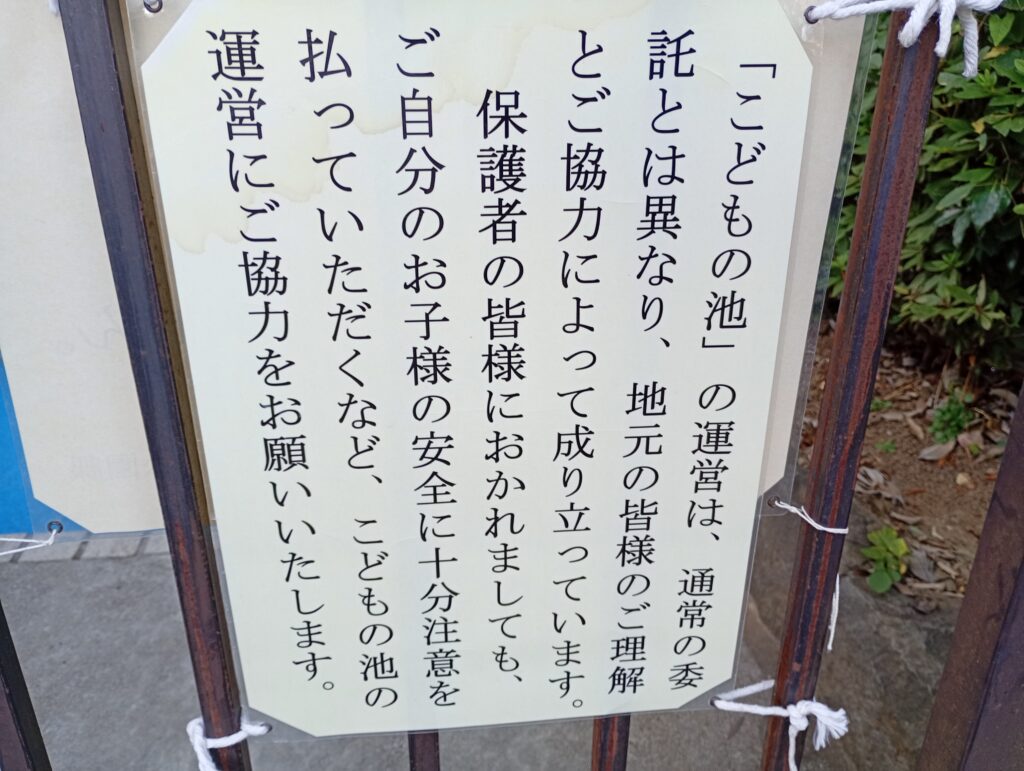 「こどもの池」の運営は、通常の委
託とは異なり、地元の皆様のご理解
とご協力によって成り立っています。
保護者の皆様におかれましても、
ご自分のお子様の安全に十分注意を
払っていただくなど、こどもの池の
運営にご協力をお願いいたします。